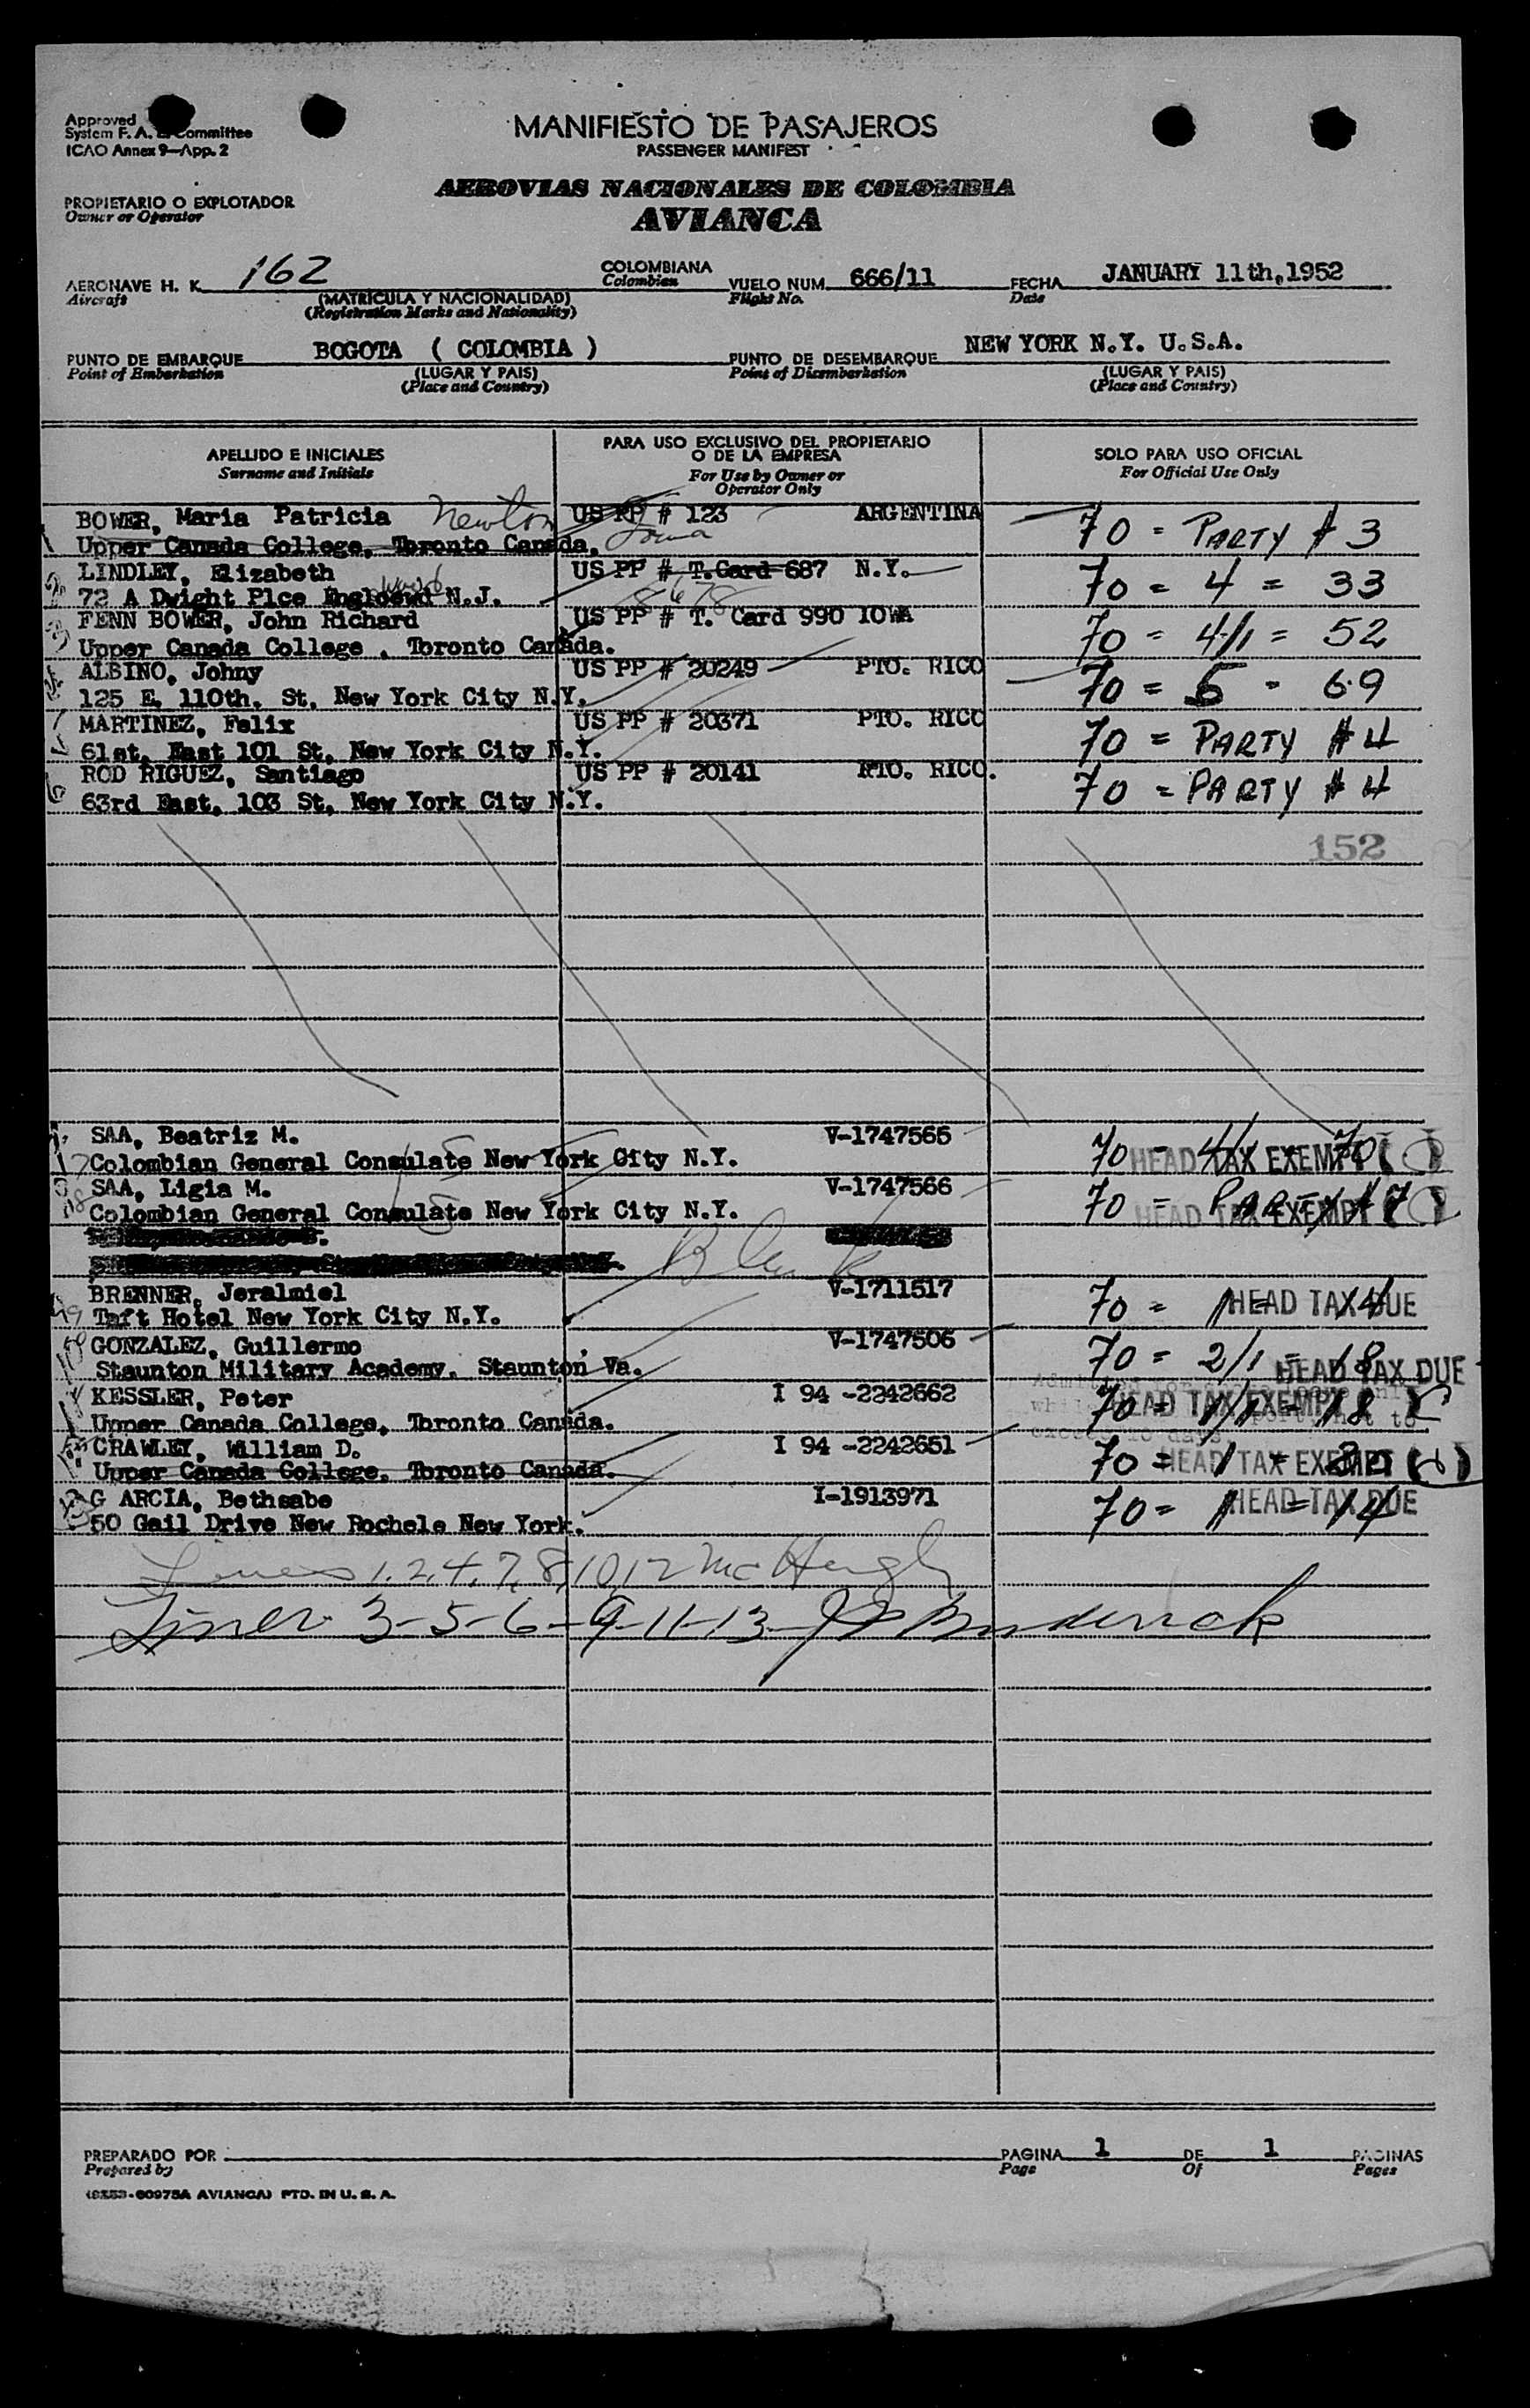 Approved
System F. A. L. Committee
ICAO Annex 9—App. 2
MANIFIESTO DE PASAJEROS
PASSENGER MANIFEST
PROPIETARIO O EXPLOTADOR
Owner or Operator
AEROVIAS NACIONALES DE COLOMBIA
AVIANCA
AERONAVE H. K. 162 COLOMBIANA VUELO NUM. 666/11 FECHA JANUARY 11th,1952
Aircraft (MATRICULA Y NACIONALIDAD) Colombian Flight No. Date
(Registration Marks and Nationality)
PUNTO DE EMBARQUE BOGOTA ( COLOMBIA ) PUNTO DE DESEMBARQUE NEW YORK N.Y. U.S.A.
Point of Embarkation (LUGAR Y PAIS) Point of Disembarkation (LUGAR Y PAIS)
(Place and Country) (Place and Country)
APELLIDO E INICIALES PARA USO EXCLUSIVO DEL PROPIETARIO O DE LA EMPRESA SOLO PARA USO OFICIAL
Surname and Initials For Use by Owner or Operator Only For Official Use Only
BOWER, Maria Patricia Newton US PP # 123 ARGENTINA 70 = PARTY # 3
Upper Canada College, Toronto Canada. Iowa
LINDLEY, Elizabeth US PP # T.Card 687 N.Y. 70 = 4 = 33
72 A Dwight Plce Engloewd wood N.J. 8678
FENN BOWER, John Richard US PP # T. Card 990 IOWA 70 = 4/1 = 52
Upper Canada College , Toronto Canada.
ALBINO, Johny US PP # 20249 PTO. RICO 70 = 5 - 69
125 E, 110th, St, New York City N.Y.
MARTINEZ, Felix US PP # 20371 PTO. RICO 70 = PARTY # 4
61st, East 101 St, New York City N.Y.
ROD RIGUEZ, Santiago US PP # 20141 PTO. RICO. 70 = PARTY # 4
63rd East, 103 St, New York City N.Y.
152
SAA, Beatriz M. V-1747565 70 - 4/1 - 70
Colombian General Consulate New York City N.Y. HEAD TAX EXEMPT
SAA, Ligia M. V-1747566 70 = PARTY # 7
Colombian General Consulate New York City N.Y. HEAD TAX EXEMPT
Blank
BRENNER, Jeralmiel V-1711517 70 = 1 = 14 HEAD TAX DUE
Taft Hotel New York City N.Y.
GONZALEZ, Guillermo V-1747506 70 = 2/1 = 18 HEAD TAX DUE
Staunton Military Academy, Staunton Va.
KESSLER, Peter I 94 -2242662 70 = 1/1 - 18 HEAD TAX EXEMPT
Upper Canada College, Toronto Canada.
CRAWLEY, William D. I 94 -2242651 70 = 1 - 30 HEAD TAX EXEMPT
Upper Canada College, Toronto Canada.
G ARCIA, Bethsabe I-1913971 70 = 1 = 14 HEAD TAX DUE
50 Gail Drive New Rochele New York.
Lines 1, 2, 4, 7, 8, 10, 12 McHugh
Lines 3-5-6-9-11-13
PREPARADO POR PAGINA 1 DE 1 PAGINAS
Prepared by Page Of Pages
AVIANCA) PTD. IN U. S. A.